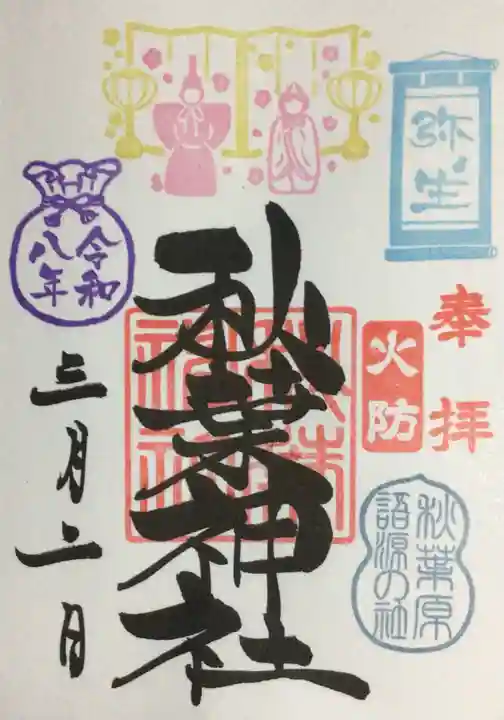 弥生
奉拝
火防
秋葉原
語源の社
秋葉神社
秋葉
神社
令和
八年
三月二日